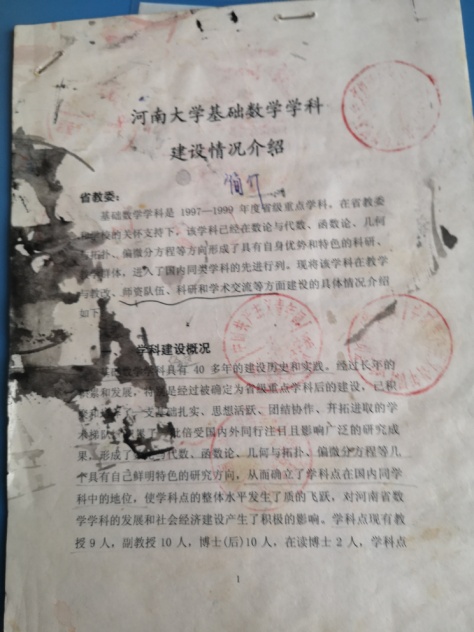 河南大学基础数学学科
建设情况介绍
简介
省教委:
基础数学学科是 1997—1999 年度省级重点学科。在省教委
和学校的关怀支持下,该学科已经在数论与代数、函数论、几何
拓扑、偏微分方程等方向形成了具有自身优势和特色的科研、
群体,进入了国内同类学科的先进行列。现将该学科在教学
与教改、师资队伍、科研和学术交流等方面建设的具体情况介绍
如下
学科建设概况
数学学科具有 40 多年的建设历史和实践。经过长年的
和发展,特别是经过被确定为省级重点学科后的建设,已积
一支基础扎实、思想活跃、团结协作、开拓进取的学
术梯队,批倍受国内外同行注目且影响广泛的研究成
果,形成了代数、函数论、几何与拓扑、偏微分方程等几
个具有自己鲜明特色的研究方向,从而确立了学科点在国内同学
科中的地位,使学科点的整体水平发生了质的飞跃,对河南省数
学学科的发展和社会经济建设产生了积极的影响。学科点现有教
授 9 人,副教授 10 人,博士(后)10 人,在读博士 2 人,学科点
1